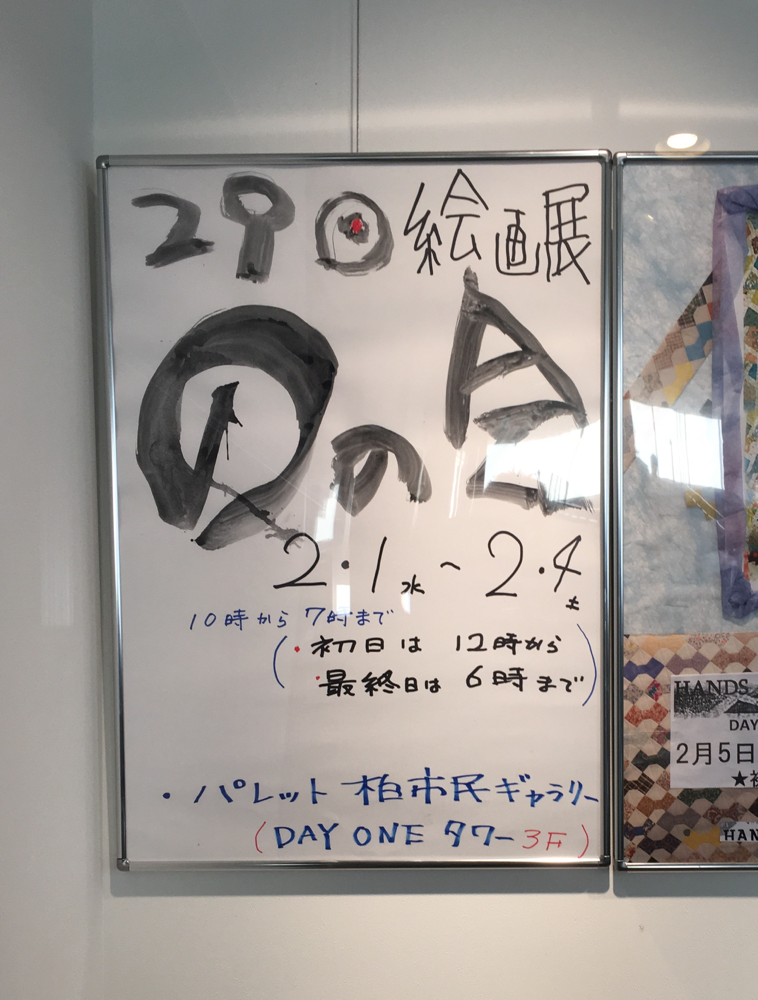 29回 絵画展
Qの会
2・1水~2・4土
10時から 7時まで
(・初日は 12時から
・最終日は 6時まで)
・パレット 柏市民ギャラリー
(DAY ONE タワー 3F)
HANDS
DAY
2月5日
★
HAN